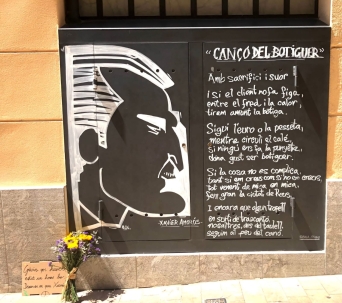 "CANÇÓ DEL BOTIGUER"
Amb sacrifici i suor
i si el client no fa figa,
entre el fred i la calor,
tirem amunt la botiga.
Sigui l'euro o la pesseta,
mentre circuli el calé,
si ningú ens fa la
dona gust ser botiguer.
Si la cosa no es complica,
tant si em creus com si no em creus,
tot venent de mica en mica,
fem gran la ciutat de Reus.
I encara que algun tropell
en surti de trascantó,
nosaltres, des del taulell,
seguim al peu del canó
XAVIER AMORÓS